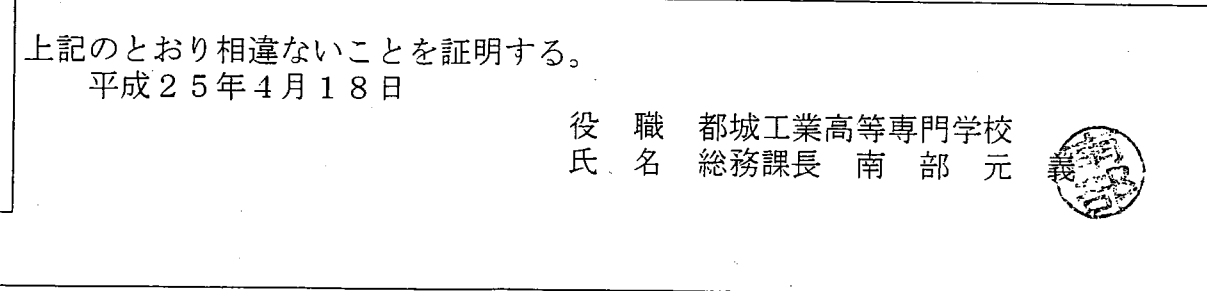 上記のとおり相違ないことを証明する。
平成２５年４月１８日
役　職　都城工業高等専門学校
氏　名　総務課長　南　部　元　義
南部